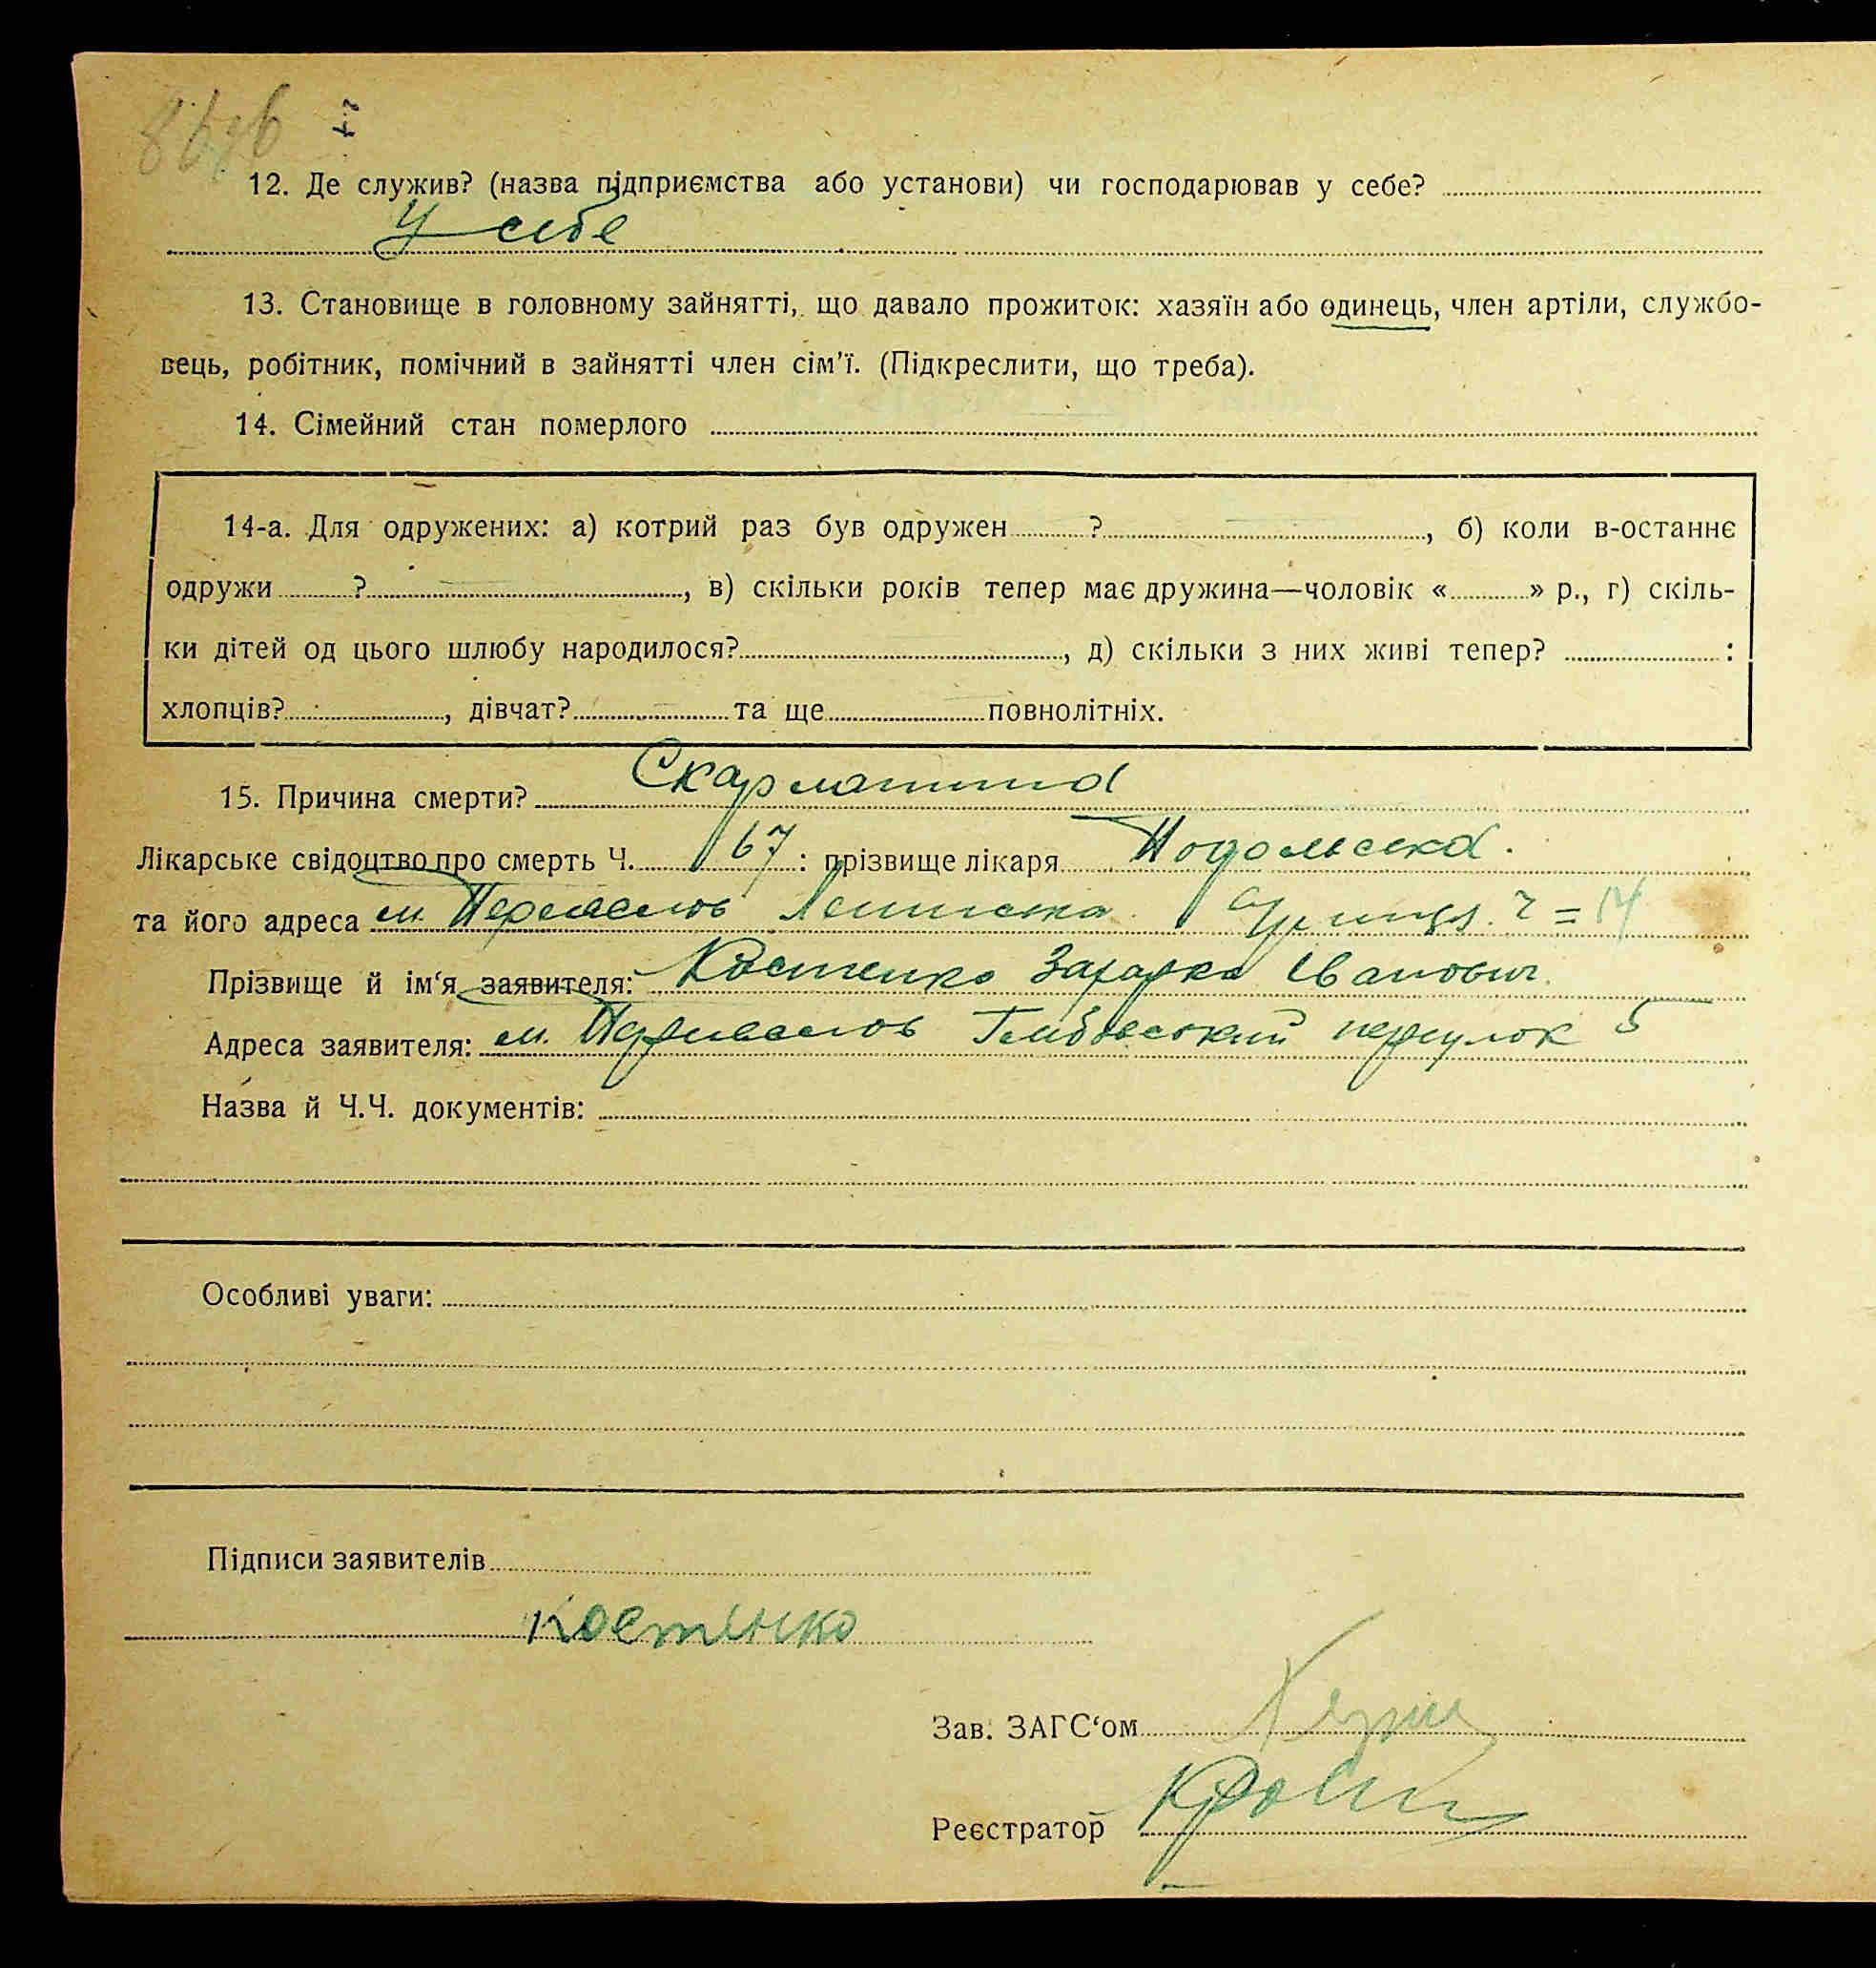 12. Де служив? (назва підприємства або установи) чи господарював у себе?
У себе
13. Становище в головному зайнятті, що давало прожиток: хазяїн або одинець, член артіли, службо-
вець, робітник, помічний в зайнятті член сім'ї. (Підкреслити, що треба).
14. Сімейний стан померлого
14-а. Для одружених: а) котрий раз був одружен ? , б) коли в-останнє
одружи ? , в) скільки років тепер має дружина—чоловік « » р., г) скіль-
ки дітей од цього шлюбу народилося? , д) скільки з них живі тепер? :
хлопців? , дівчат? та ще повнолітніх.
15. Причина смерти? Скарлатина
Лікарське свідоцтво про смерть Ч. 67 : прізвище лікаря Подольська.
та його адреса м. Переяслов 14
Прізвище й ім'я заявителя: Костенко Іванович
Адреса заявителя: м. Переяслов переулок 5
Назва й Ч.Ч. документів:
Особливі уваги:
Підписи заявителів
Костенко
Зав. ЗАГС'ом
Реєстратор